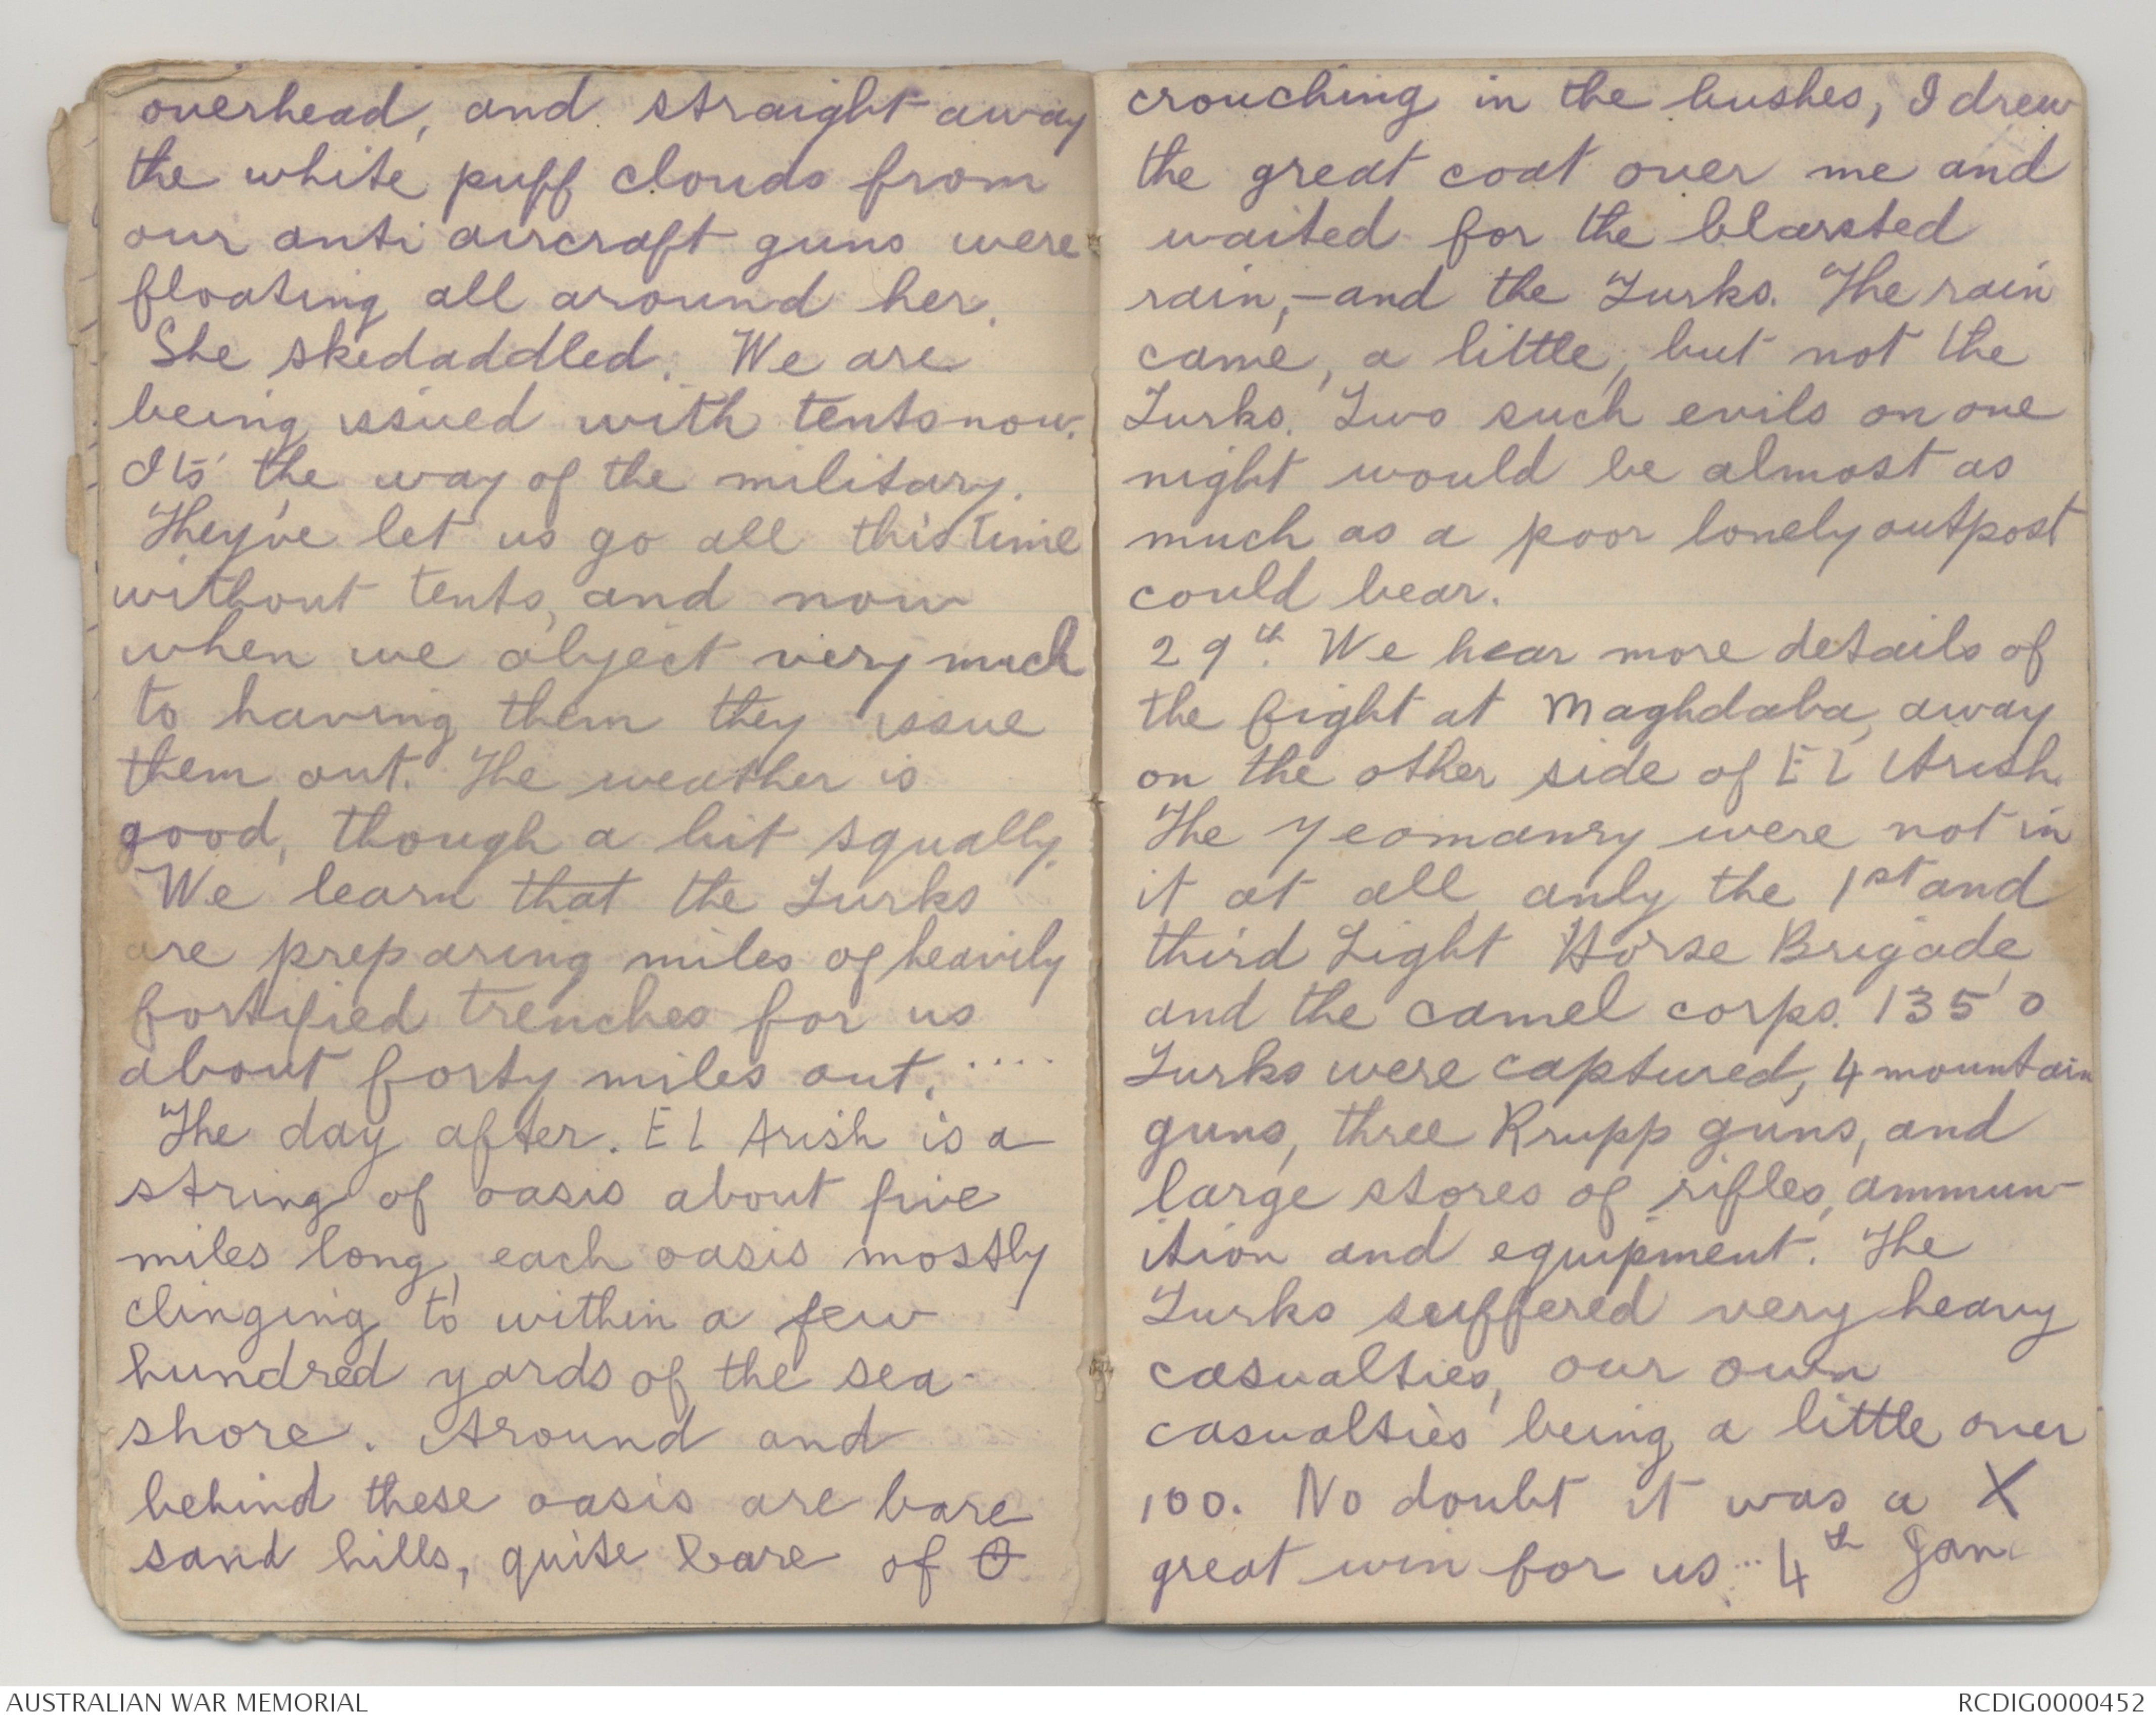 overhead, and straight away
the white puff clouds from
our anti aircraft guns were
floating all around her.
She skedaddled. We are
being issued with tents now.
Its the way of the military.
They've let us go all this time
without tents, and now
when we object very much
to having them they issue
them out. The weather is
good, though a bit squally.
We learn that the Turks
are preparing miles of heavily
fortified trenches for us
about forty miles out. ....
The day after. El Arish is a
string of oasis about five
miles long, each oasis mostly
clinging to within a few
hundred yards of the sea-
shore. Around and
behind these oasis are bare
sand hills, quite bare of
crouching in the bushes, I drew
the great coat over me and
waited for the blarsted
rain, - and the Turks. The rain
came, a little, but not the
Turks. Two such evils on one
night would be almost as
much as a poor lonely outpost
could bear.
29th. We hear more details of
the fight at Maghdaba, away
on the other side of El Arish.
The Yeomanry were not in
it at all, only the 1st and
third Light Horse Brigade,
and the camel corps. 1350
Turks were captured, 4 mountain
guns, three Krupp guns, and
large stores of rifles, ammun-
ition and equipment. The
Turks suffered very heavy
casualties, our own
casualties being a little over
100. No doubt it was a X
great win for us ... 4th Jan.
AUSTRALIAN WAR MEMORIAL
RCDIG0000452